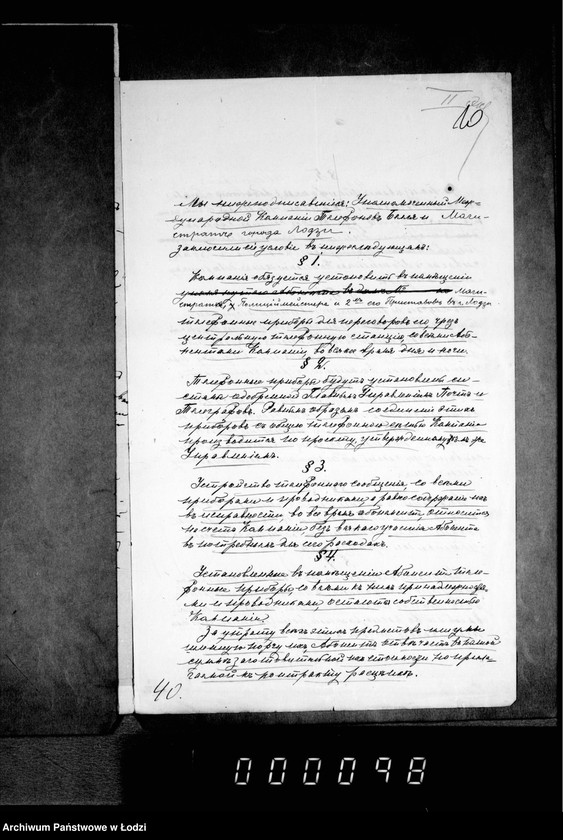 II
10
Мы нижеподписавшіеся: Уполномоченный Меж-
дународной Компаніи Телефоновъ Белля и Маги-
стратъ города Лодзи.
Заключили условіе въ нижеслѣдующемъ:
§ 1.
Компанія обязуется установить въ помѣщеніи
Маги-
страта, Полиціймейстера и 2хъ его Приставовъ въ г. Лодзи
телефонные приборы для переговоровъ его чрезъ
центральную телефонную станцію, со всѣми Або-
нентами Компаніи, во всякое время дня и ночи.
§ 2.
Телефонные приборы будутъ установлены си-
стемы одобренной Главнымъ Управленіемъ Почтъ и
Телеграфовъ. Равнымъ образомъ соединеніе этихъ
приборовъ съ общею телефонною сѣтью Компаніи
производится по проекту, утвержденному тѣмъ же
Управленіемъ.
§ 3.
Устройство телефоннаго сообщенія, со всѣми
приборами и проводниками, а равно содержаніе ихъ
въ исправности во все время абонемента, относится
на счетъ Компаніи, безъ всякаго участія Абонента
въ потребныхъ для сего расходахъ.
§ 4.
Установленные въ помѣщеніи Абонента теле-
фонные приборы, со всѣми къ нимъ принадлежностя-
ми и проводниками остаются собственностью
Компаніи.
За утрату всѣхъ этихъ предметовъ или умы-
шленную порчу ихъ Абонентъ отвѣчаетъ въ полной
суммѣ заготовительной ихъ стоимости по прила-
гаемой къ контракту расцѣнкѣ.
40.
000098
Archiwum Państwowe w Łodzi